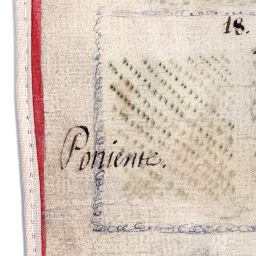 18.
Poniente.